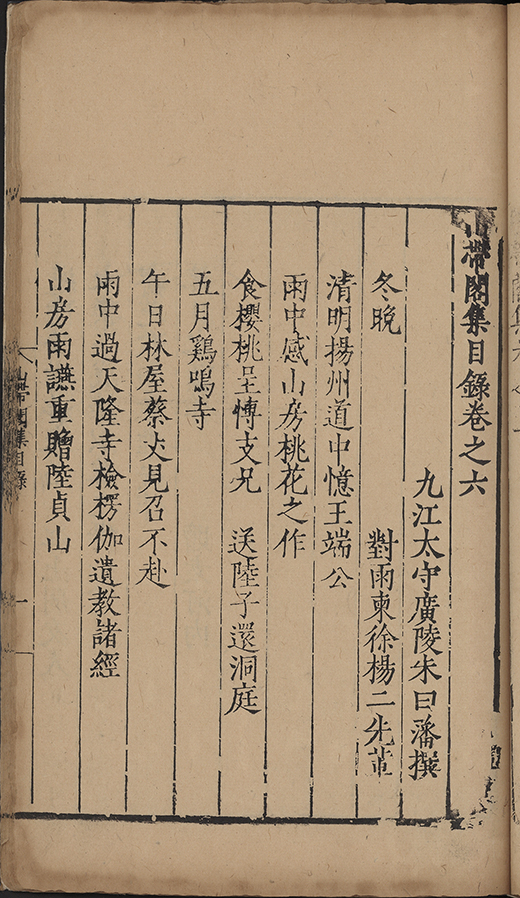 山帶閣集目錄卷之六
九江太守廣陵朱曰藩撰
冬晚　對雨柬徐楊二先輩
清明揚州道中憶王端公
雨中感山房桃花之作
食櫻桃呈愽支兄　送陸子還洞庭
五月鷄鳴寺
午日林屋蔡丈見召不赴
雨中過天隆寺檢楞伽遺教諸經
山房雨讌重贈陸貞山
山帶閣集目錄
一